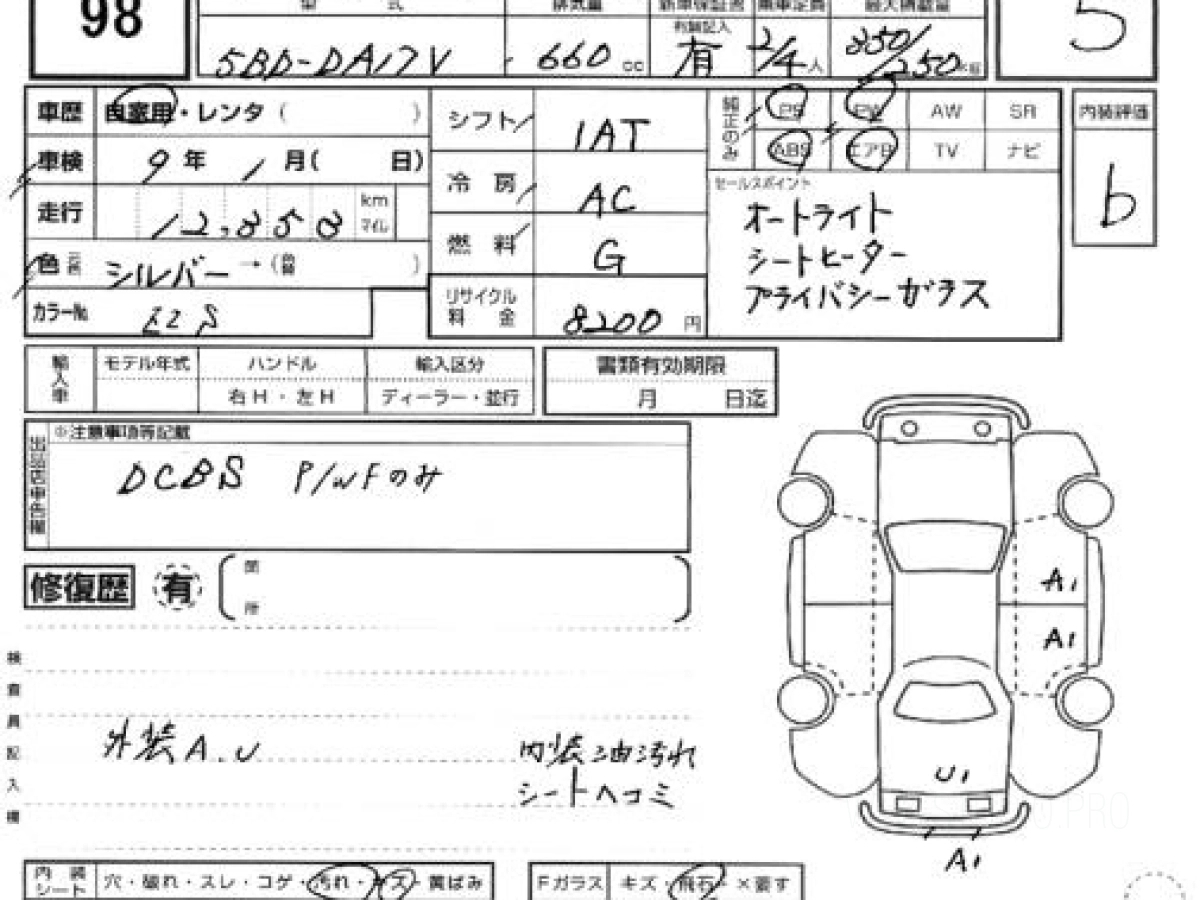 98
型 式 排気量 新車保証書 乗車定員 最大積載量
有無記入
5BD-DA17V 660 cc 有 2/4 人 350/250 5
車歴 自家用・レンタ( )
車検 9 年 1 月( 日)
走行 12,858 km マイル
色 元色 シルバー →(色替 )
カラーNo Z2S
シフト 1AT
冷房 AC
燃料 G
リサイクル料金 8200 円
純正のみ PS PW AW SR
ABS エアB TV ナビ
セールスポイント
オートライト
シートヒーター
プライバシーガラス
内装評価
b
輸入車 モデル年式 ハンドル 輸入区分
右H・左H ディーラー・並行
書類有効期限
月 日迄
出品店申告欄 ※注意事項等記載
DCBS P/WFのみ
修復歴 有
検査員記入欄
外装A.U
内装油汚れ
シートヘコミ
A1
A1
U1
A1
内装シート 穴・破れ・スレ・コゲ・汚れ・キズ・黄ばみ
Fガラス キズ・飛石・×要す